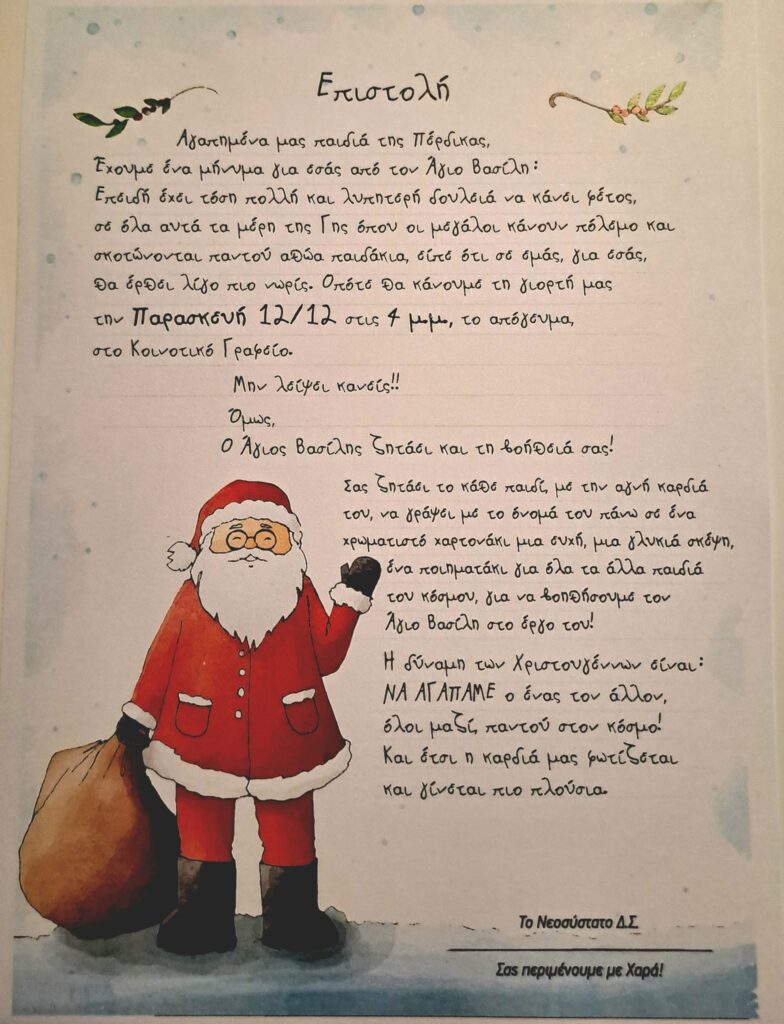 Επιστολή
Αγαπημένα μας παιδιά της Πέρδικας,
Έχουμε ένα μήνυμα για εσάς από τον Άγιο Βασίλη:
Επειδή έχει τόση πολλή και λυπητερή δουλειά να κάνει φέτος,
σε όλα αυτά τα μέρη της Γης όπου οι μεγάλοι κάνουν πόλεμο και
σκοτώνονται παντού αθώα παιδάκια, είπε ότι σε εμάς, για εσάς,
θα έρθει λίγο πιο νωρίς. Οπότε θα κάνουμε τη γιορτή μας
την Παρασκευή 12/12 στις 4 μ.μ., το απόγευμα,
στο Κοινοτικό Γραφείο.
Μην λείψει κανείς!!
Όμως,
Ο Άγιος Βασίλης ζητάει και τη βοήθειά σας!
Σας ζητάει το κάθε παιδί, με την αγνή καρδιά
του, να γράψει με το όνομά του πάνω σε ένα
χρωματιστό χαρτονάκι μια ευχή, μια γλυκιά σκέψη,
ένα ποιηματάκι για όλα τα άλλα παιδιά
του κόσμου, για να βοηθήσουμε τον
Άγιο Βασίλη στο έργο του!
Η δύναμη των Χριστουγέννων είναι:
ΝΑ ΑΓΑΠΑΜΕ ο ένας τον άλλον,
όλοι μαζί, παντού στον κόσμο!
Και έτσι η καρδιά μας φωτίζεται
και γίνεται πιο πλούσια.
Το Νεοσύστατο Δ.Σ.
Σας περιμένουμε με Χαρά!